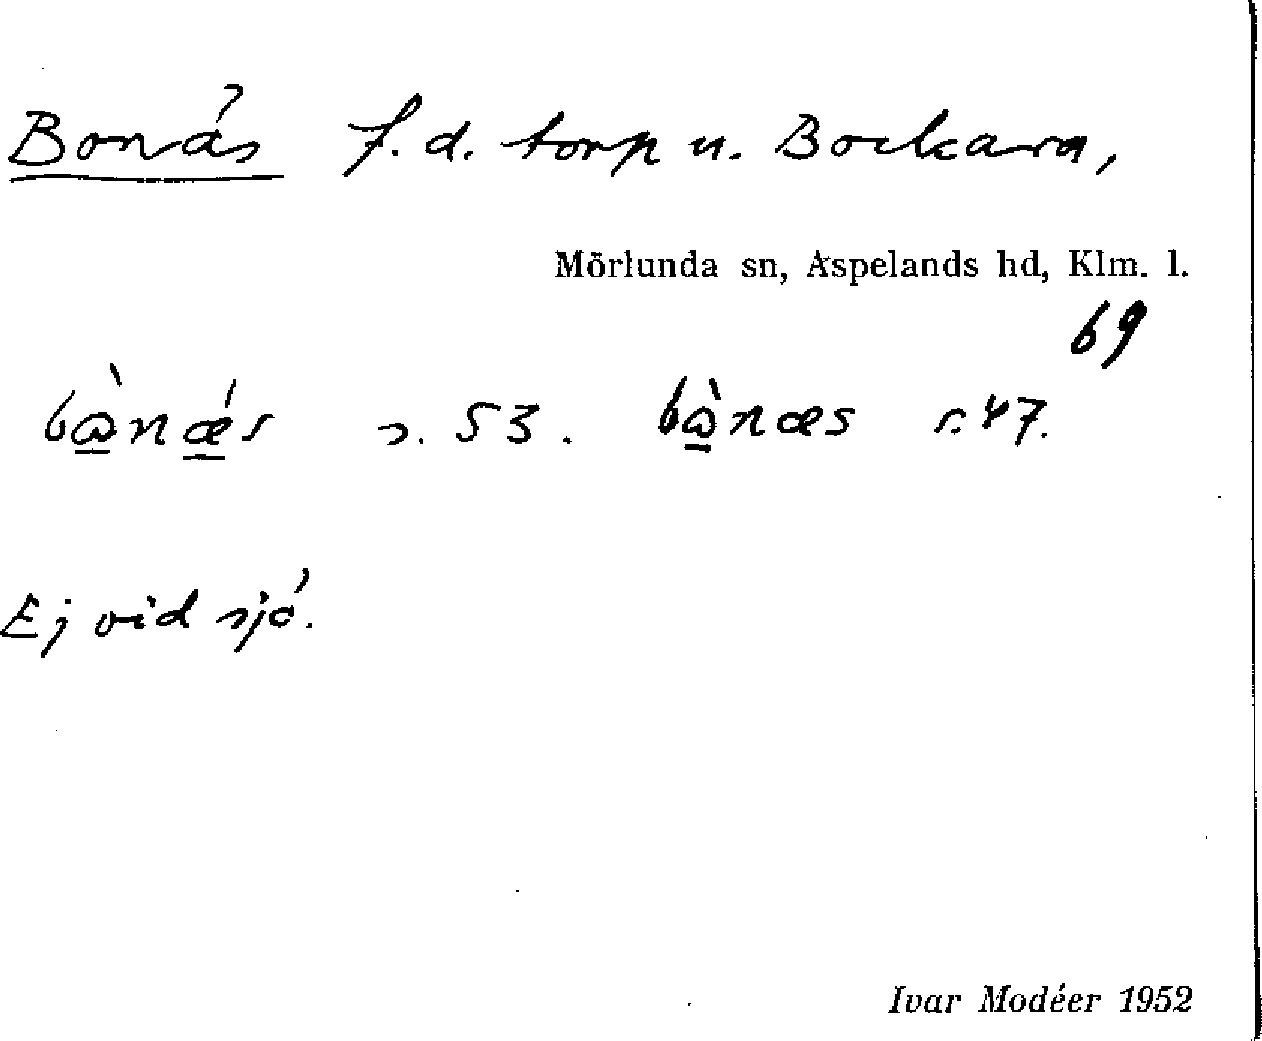 Bonäs f.d. torp u. Bockara,
Mörlunda sn, Aspelands hd, Klm. l.
69
bὼnǽs s. 53. bὼnæs s. 47.
Ej vid sjö.
Ivar Modéer 1952